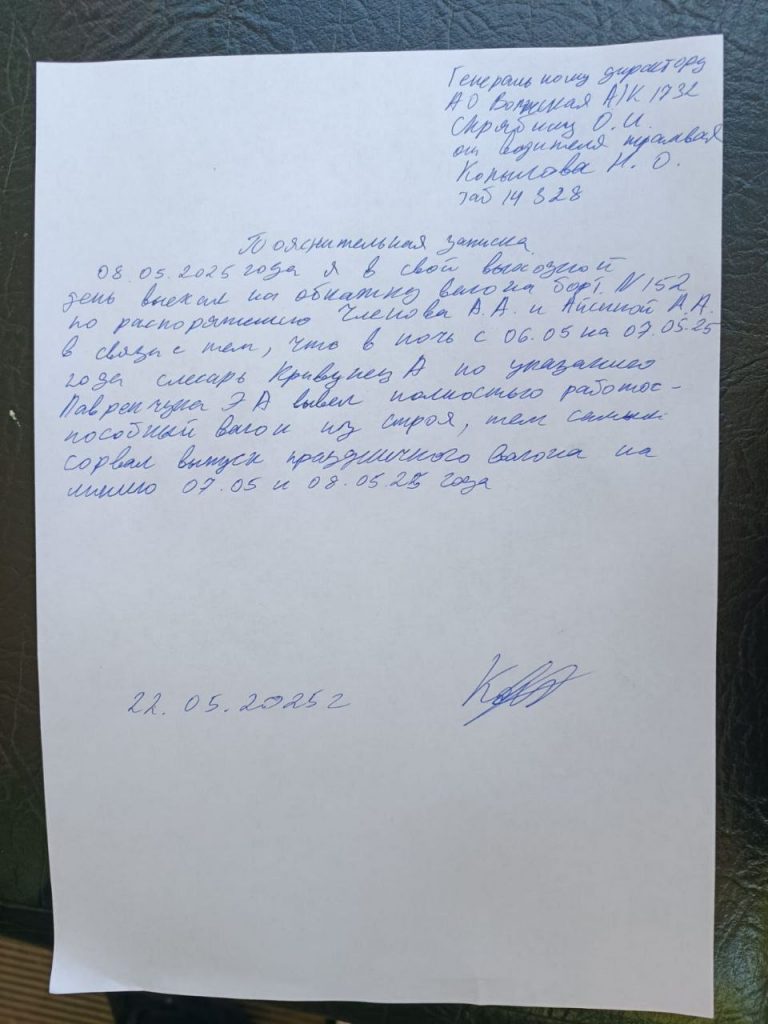 Генеральному директору
АО Волжская АТК 1732
Скрябину О. И.
от водителя трамвая
Копылова Н. О.
таб 14328
Пояснительная записка
08.05.2025 года я в свой выходной
день выехал на обкатку вагона борт. N 152
по распоряжению Членова А.А. и Айсиной А.А.
в связи с тем, что в ночь с 06.05 на 07.05.25
года слесарь Кривунец А по указанию
Лавренчука Э А вывел полностью работос-
пособный вагон из строя, тем самым
сорвал выпуск праздничного вагона на
линию 07.05 и 08.05.25 года
22.05.2025г